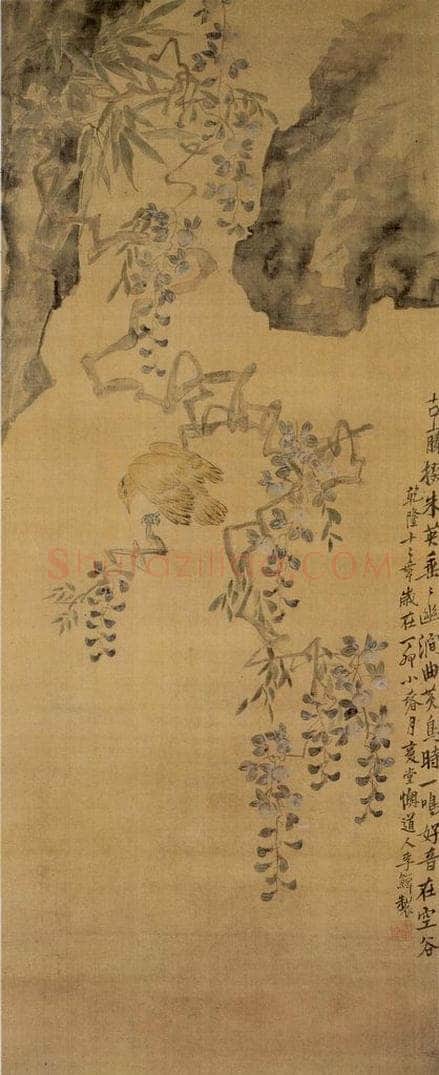 古藤橫朱英垂〻幽澗曲黃鳥時一鳴好音在空谷
乾隆十二年歲在丁卯小春月复堂懊道人李鱓製
Shufazilliao.COM